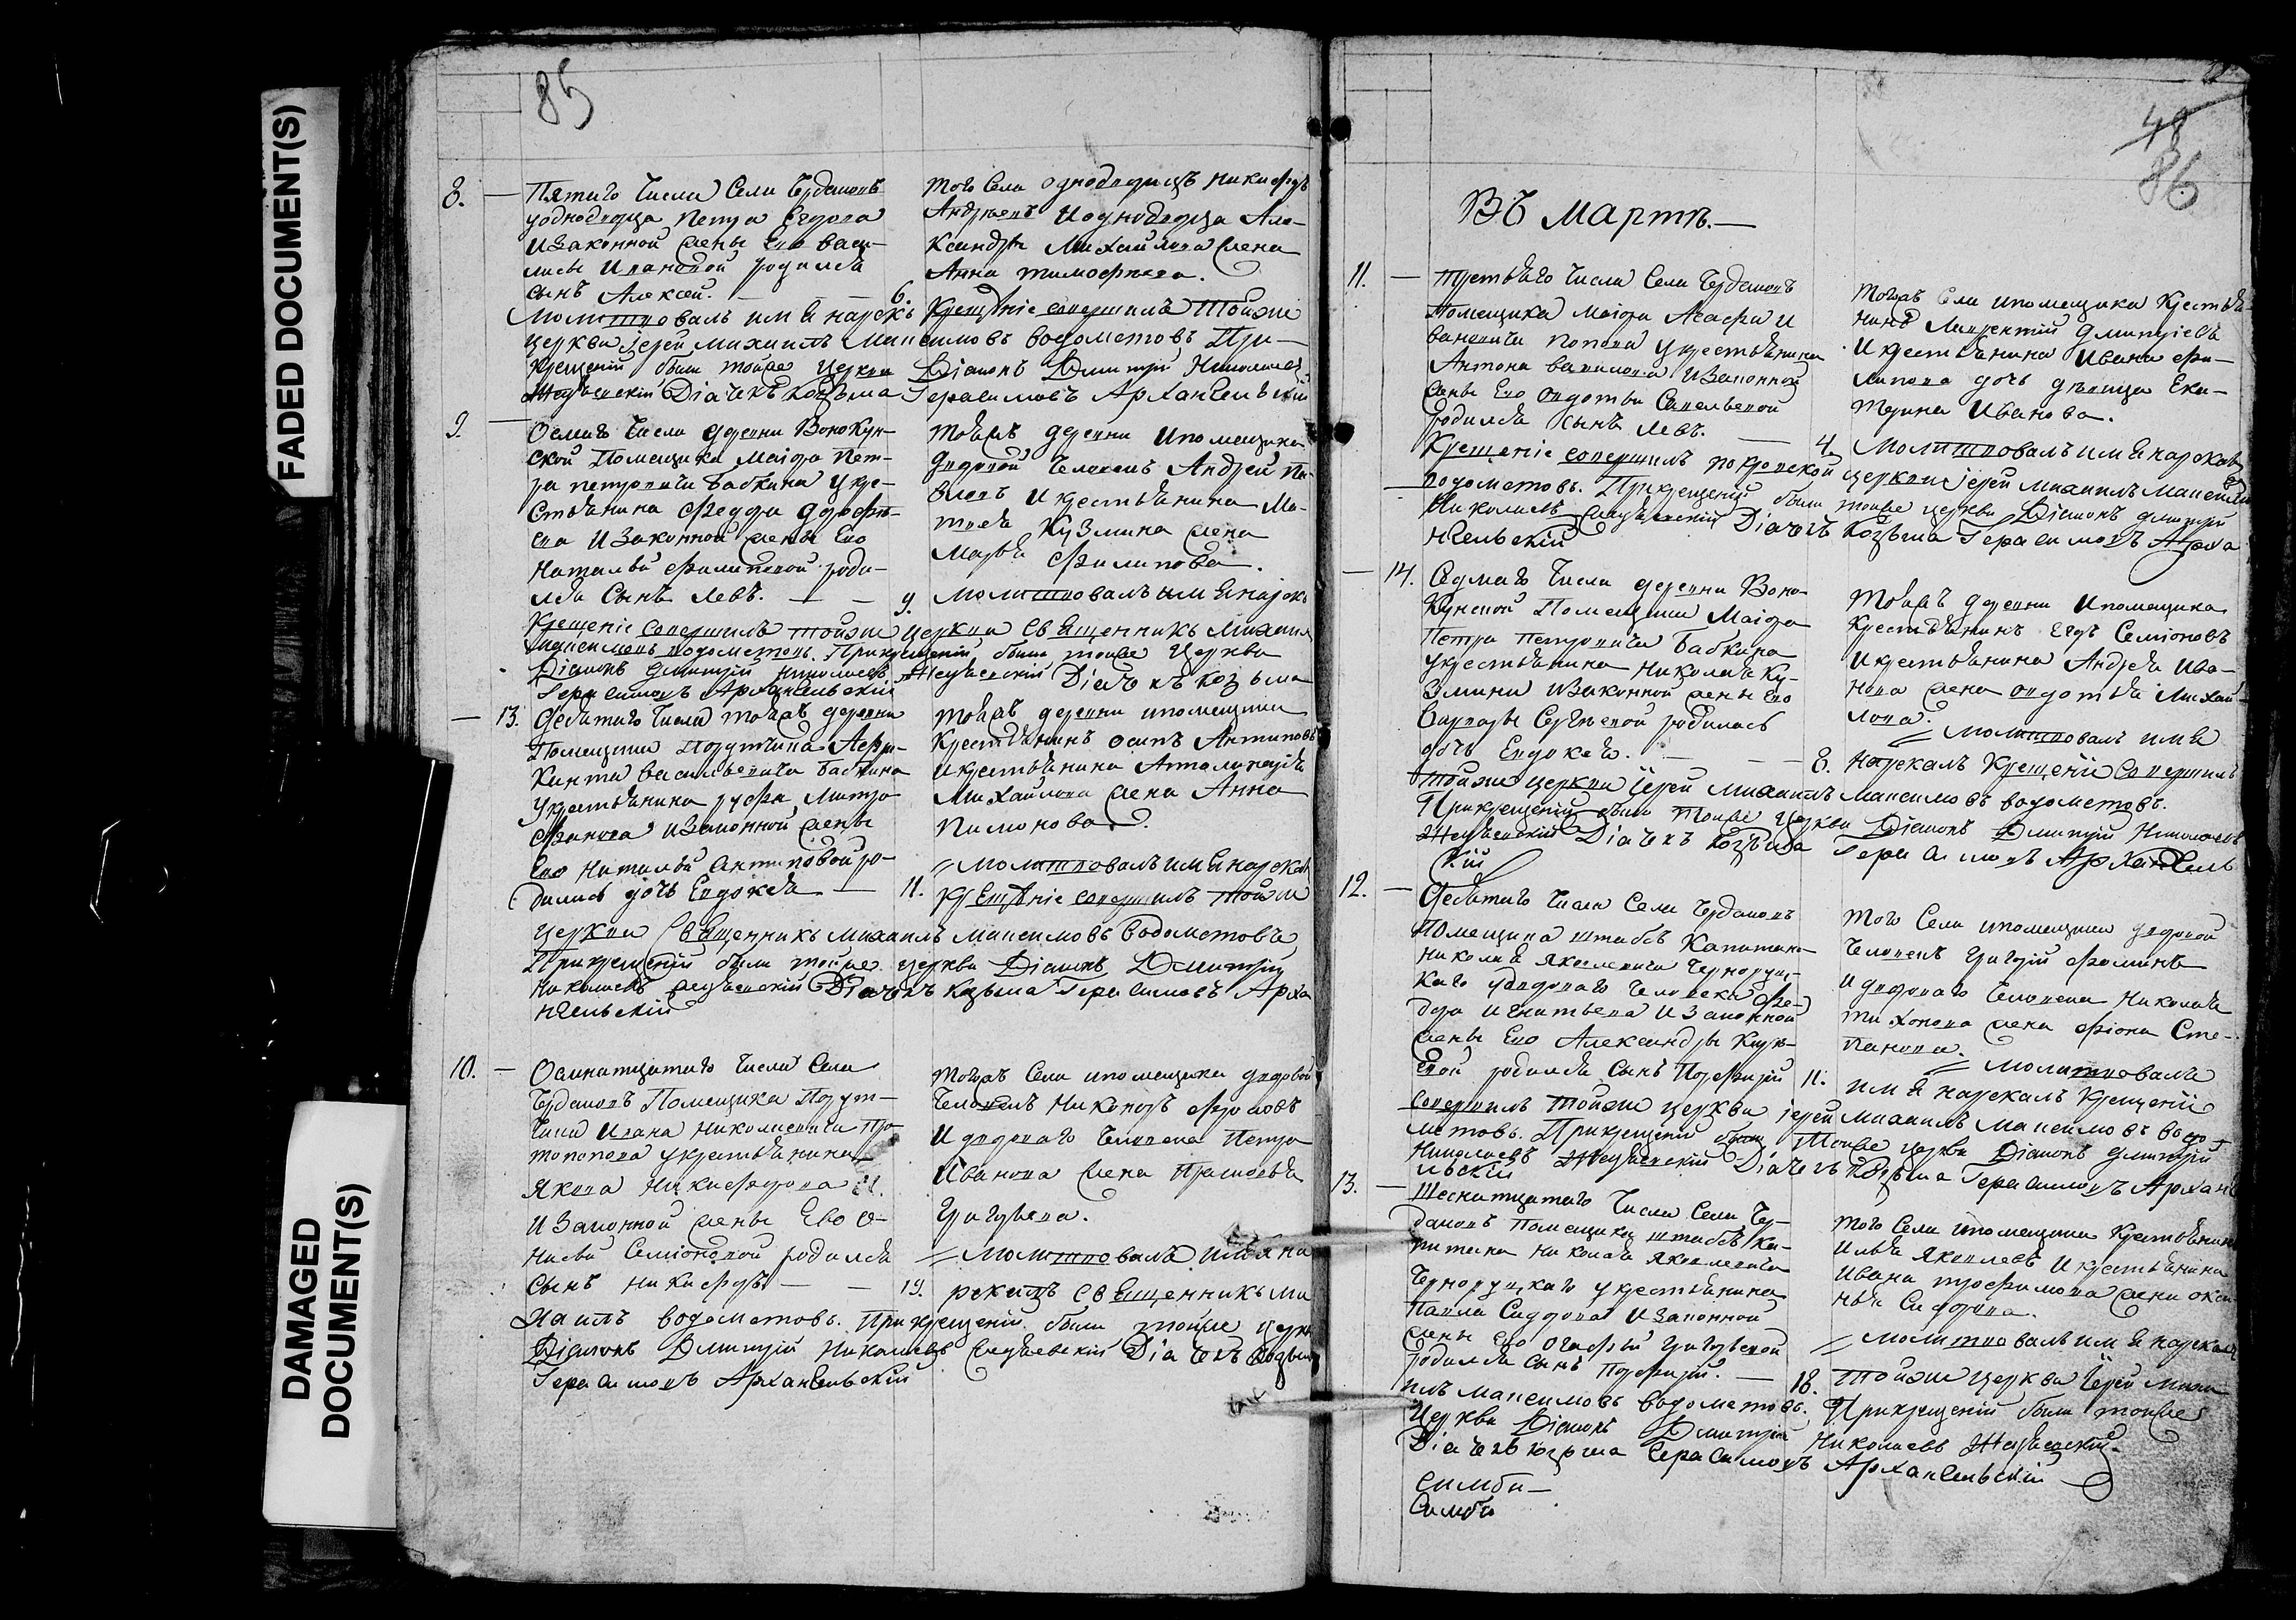 FADED DOCUMENT(S)
DAMAGED
DOCUMENT(S)
85
8. — Пятаго Числа Села Чурдамовъ
уоднодворца Петра Егорова
изаконной жены Его Васи-
лисы Ивановой родился
сынъ Алексей. — — 6.
того Села однодворецъ Никифоръ
Андреевъ иоднодворца Але-
ксандра Михайлова жена
Анна тимофеева.
молитвовалъ имя нарекъ Крещеніе совершилъ тойже
церкви іерей михаилъ Максимовъ водометовъ При-
крещеніи были тойже церкви Діаконъ Дмитрій Николаевъ
Діачекъ Козьма Герасимовъ Архангельскій
9. — Осмаго Числа деревни Вонокун-
ской Помещика Маіора Пет-
ра петровича Бабкина укре-
стьянина Федора дорофе-
ева изаконной жены Его
Натальи Филиповой роди-
лся Сынъ Левъ. — — 9.
тойжъ деревни ипомещика
дворовой Человекъ Андрей Па-
вловъ икрестьянина Ма-
твея Кузмина жена
Марья Филипова.
молитвовалъ имя нарекъ
Крещеніе совершилъ тойже церкви священникъ Михаилъ
Максимовъ водометовъ. Прикрещеніи были тойже церкви
Діаконъ Дмитрій Николаевъ Діачекъ Козьма
Герасимовъ Архангельскій
— 13. Девятаго Числа тойжъ деревни
Помещика Порутчика Афри-
кинта Васильевича Бабкина
укрестьянина руфа Митро
фанова изаконной жены
Его Натальи Антиповой ро-
дилась дочь Евдокея — 11.
тойжъ деревни ипомещика
Крестьянинъ осипъ Антиповъ
икрестьянина Апполинарія
Михайлова жена Анна
Пимонова.
молитвовалъ имя нарекалъ
крещеніе совершилъ тойже
церкви священникъ михаилъ максимовъ Водометовъ
Прикрещеніи были тойже церкви Діаконъ Дмитрій
Николаевъ Діачекъ Козьма Герасимовъ Арха
нгельскій
10. — Осмнатцатаго Числа Села
Чурдамовъ Помещика Порут-
чика Ивана Николаевича Про
топопова укрестьянина
Якова Никифорова
изаконной жены Ево о-
нисьи Семіоновой родился
сынъ Никифоръ — — 19.
тогожъ Села ипомещика дворовой
Человекъ Никоноръ Фроловъ
идвороваго Человека Петра
Иванова жена Прасковья
Григорьева.
молитвовалъ имя на
рекалъ священникъ ми
хаилъ водометовъ. Прикрещеніи были тойже церк
Діаконъ Дмитрій Николаевъ Діачекъ Козьма
Герасимовъ Архангельскій
48
86
Въ Мартѣ. —
11. — Третьяго Числа Села Чурдамовъ
Помещика Маіора Асафа И
вановича Попова укрестьянина
Антона Вавилова изаконной
жены Его Федотьи Савельевой
родился сынъ Левъ. — 4.
тогожъ Села ипомещика Крестья
нинъ Лаврентій Дмитріевъ
икрестьянина Ивана Фи-
липова дочь девица Ека-
терина Иванова.
молитвовалъ имя нарекалъ
Крещеніе совершилъ покровской церкви іерей михаилъ Максимовъ
водометовъ. Прикрещеніи были тойже церкви Діаконъ Дмитрій
Николаевъ Діачекъ Козьма Герасимовъ Арха
нгельскій
— 14. Седмаго Числа деревни Воно-
кунской Помещика Маіора
Петра Петровича Бабкина
укрестьянина Николая Ку-
змина изаконной жены Его
Варвары Сергѣевой родилась
дочь Евдокея. — — 8.
тойжъ деревни ипомещика
крестьянинъ Егоръ Семіоновъ
икрестьянина Андрея Ива-
нова жена Федотья Михай-
лова.
молитвовалъ имя
нарекалъ Крещеніе совершилъ
тойже церкви іерей михаилъ максимовъ водометовъ.
Прикрещеніи были тойже церкви Діаконъ Дмитрій Николаевъ
Діачекъ Козьма Герасимовъ Архангель
скій
12. — Девятаго Числа Села Чурдамовъ
Помещика штабсъ Капитана
Николая Яковлевича Черноруц-
каго удвороваго Человека Фе-
дора Игнатьева изаконной
жены Его Александры Кирѣ-
евой родился Сынъ Порфирій 11.
того Села ипомещика дворовой
Человекъ Григорій Фоминъ
идвороваго Человека Николая
Тихонова жена Фіона Сте-
панова.
молитвовалъ
имя нарекалъ крещеніе
совершилъ тойже церкви іерей михаилъ максимовъ водо-
метовъ. Прикрещеніи были тойже церкви Діаконъ Дмитрій
Николаевъ Діачекъ Козьма Герасимовъ Арханге
льскій
13. — Шеснатцатаго Числа Села Чур-
дамовъ Помещика штабсъ Ка-
питана Николая Яковлевича
Черноруцкаго укрестьянина
Павла Сидорова изаконной
жены Его Агафьи Григорьевой
родился сынъ Порфирій. — 18.
того Села ипомещика Крестьянинъ
Илья Яковлевъ икрестьянина
Ивана трофимова жена окси
нья Сидорова.
молитвовалъ имя нарекалъ
тойже церкви іерей Миха
илъ Максимовъ водометовъ. Прикрещеніи были тойже
церкви Діаконъ Дмитрій Николаевъ
Діачекъ Козьма Герасимовъ Архангельскій
Симби —
Симби